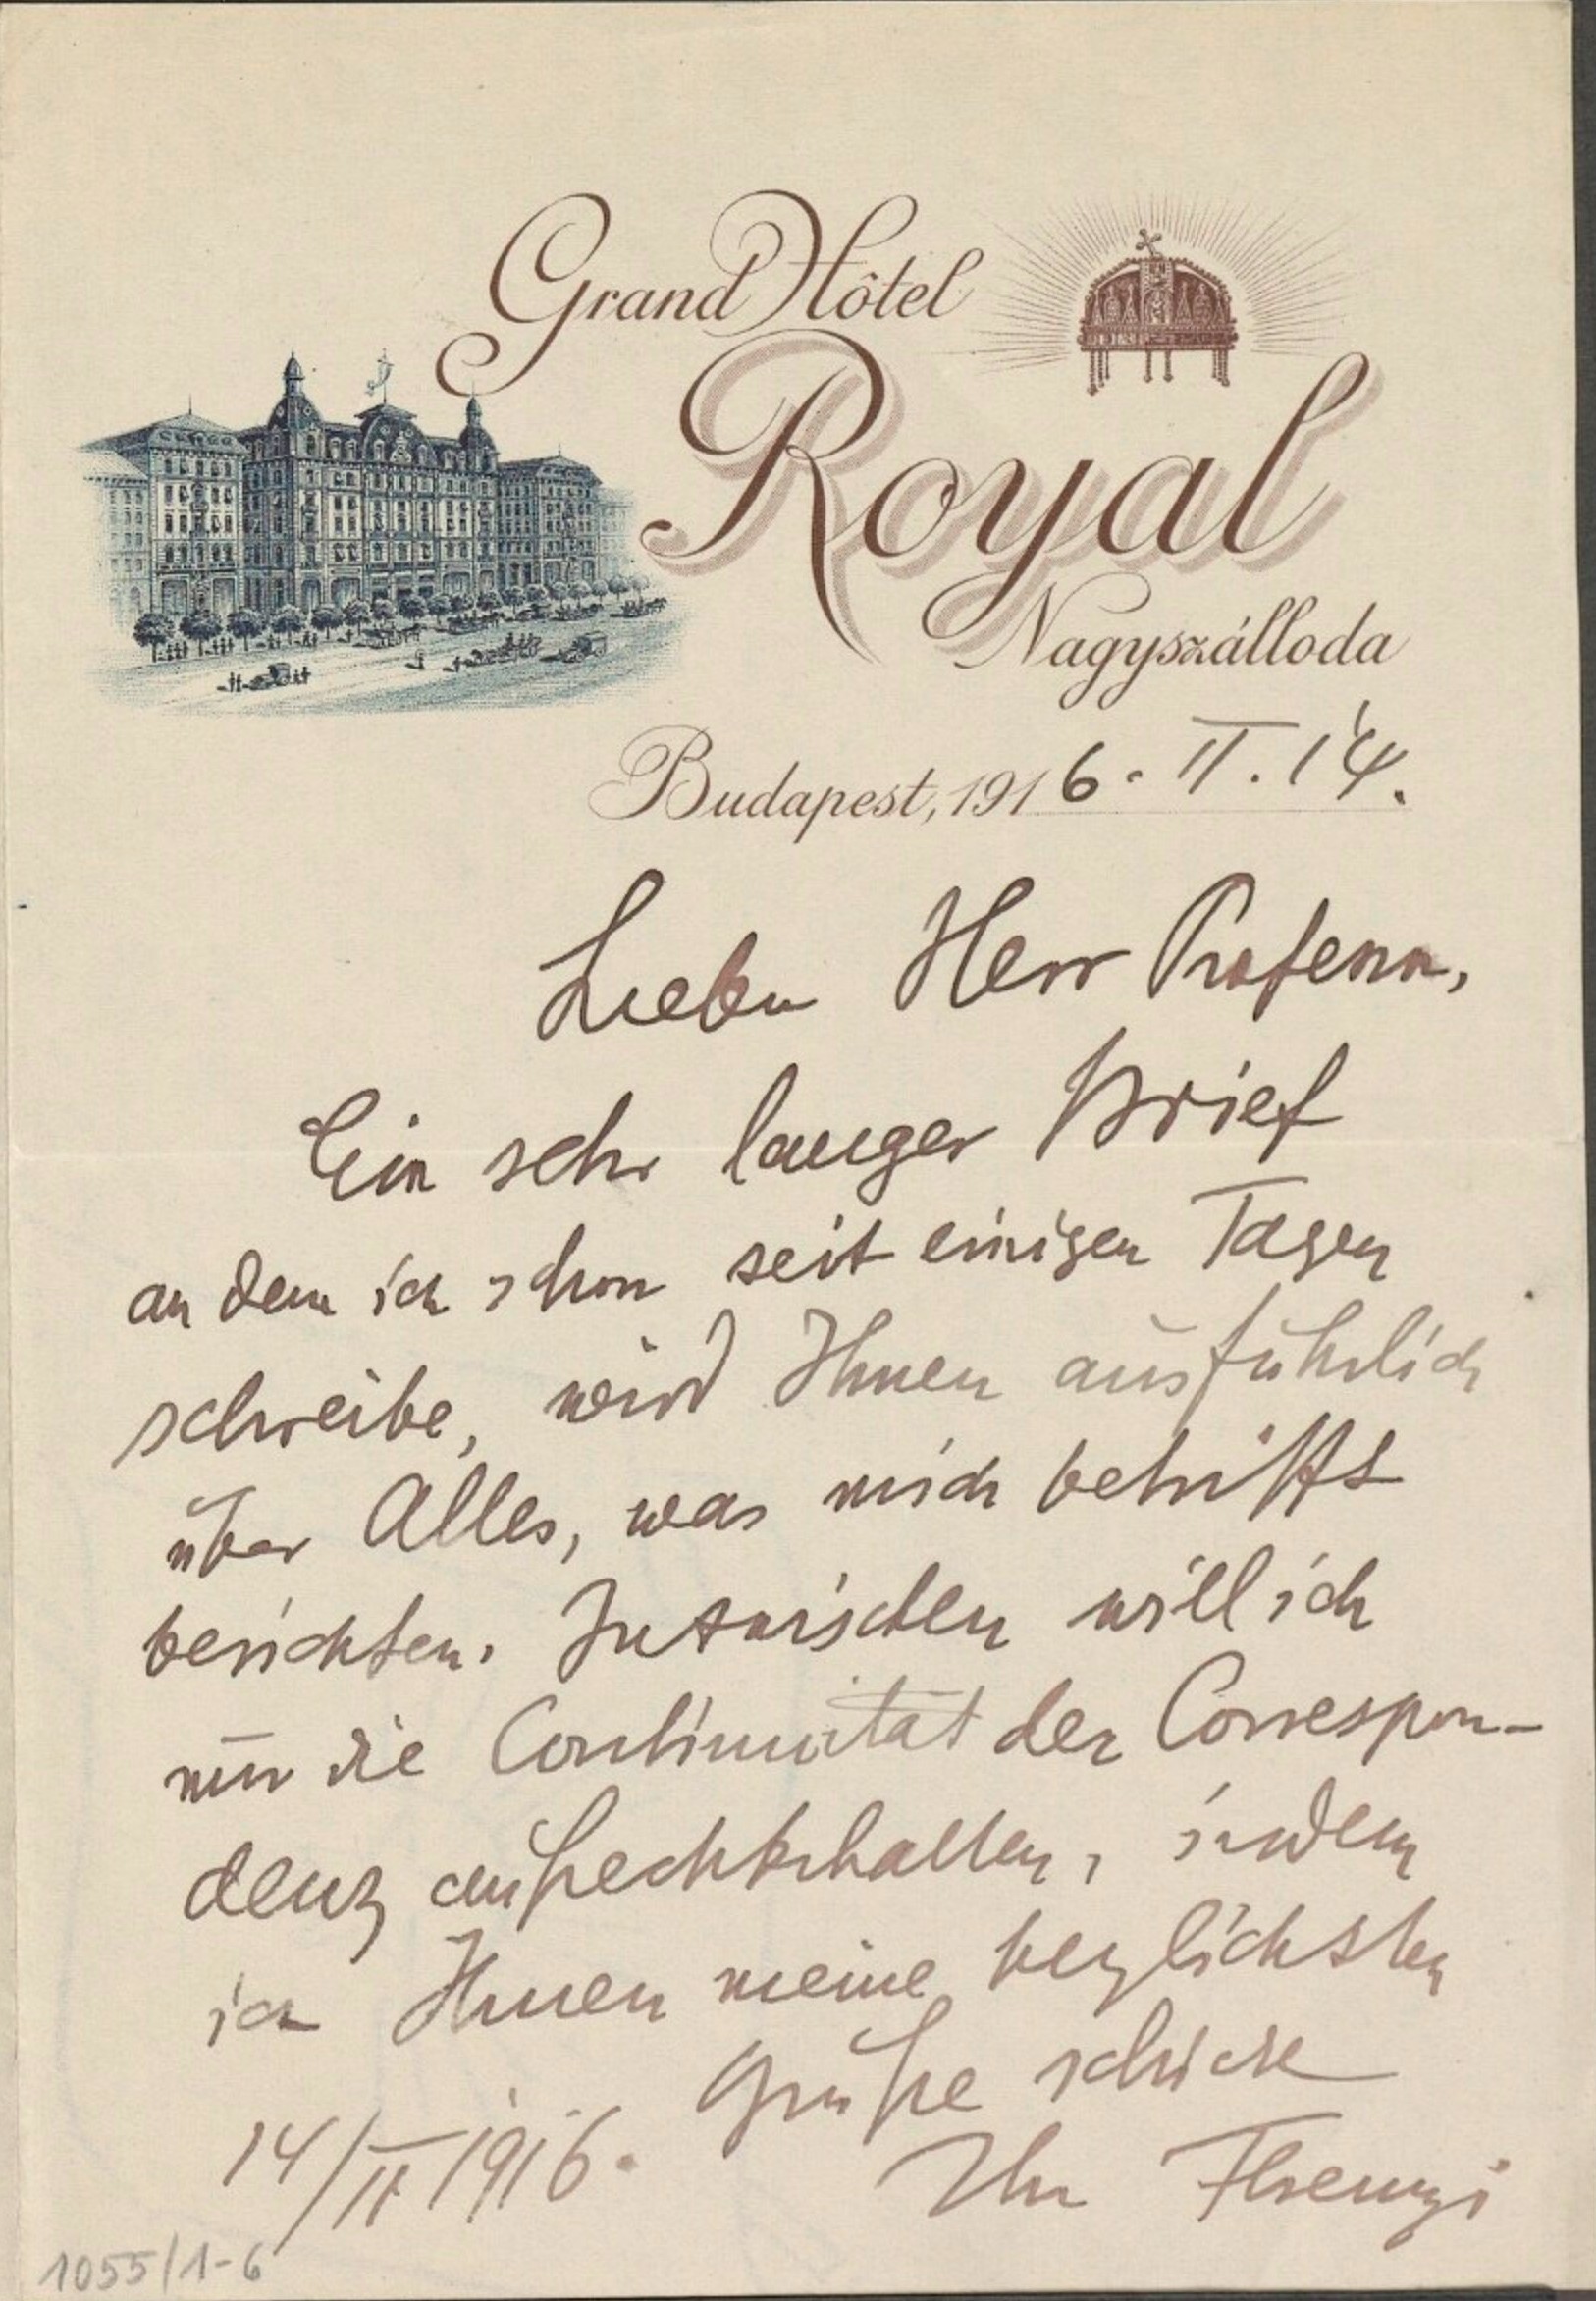 Grand Hôtel
Royal
Nagyszálloda
Budapest, 1916. II. 14.
Lieber Herr Professor,
Ein sehr langer Brief
an dem ich schon seit einigen Tagen
schreibe, wird Ihnen ausführlich
über Alles, was mich betrifft
berichten. Inzwischen will ich
nur die Continuität der Correspon-
denz aufrechterhalten, indem
ich Ihnen meine herzlichsten
Grüße schicke
14/II 1916. Ihr Ferenczi
1055/1-6